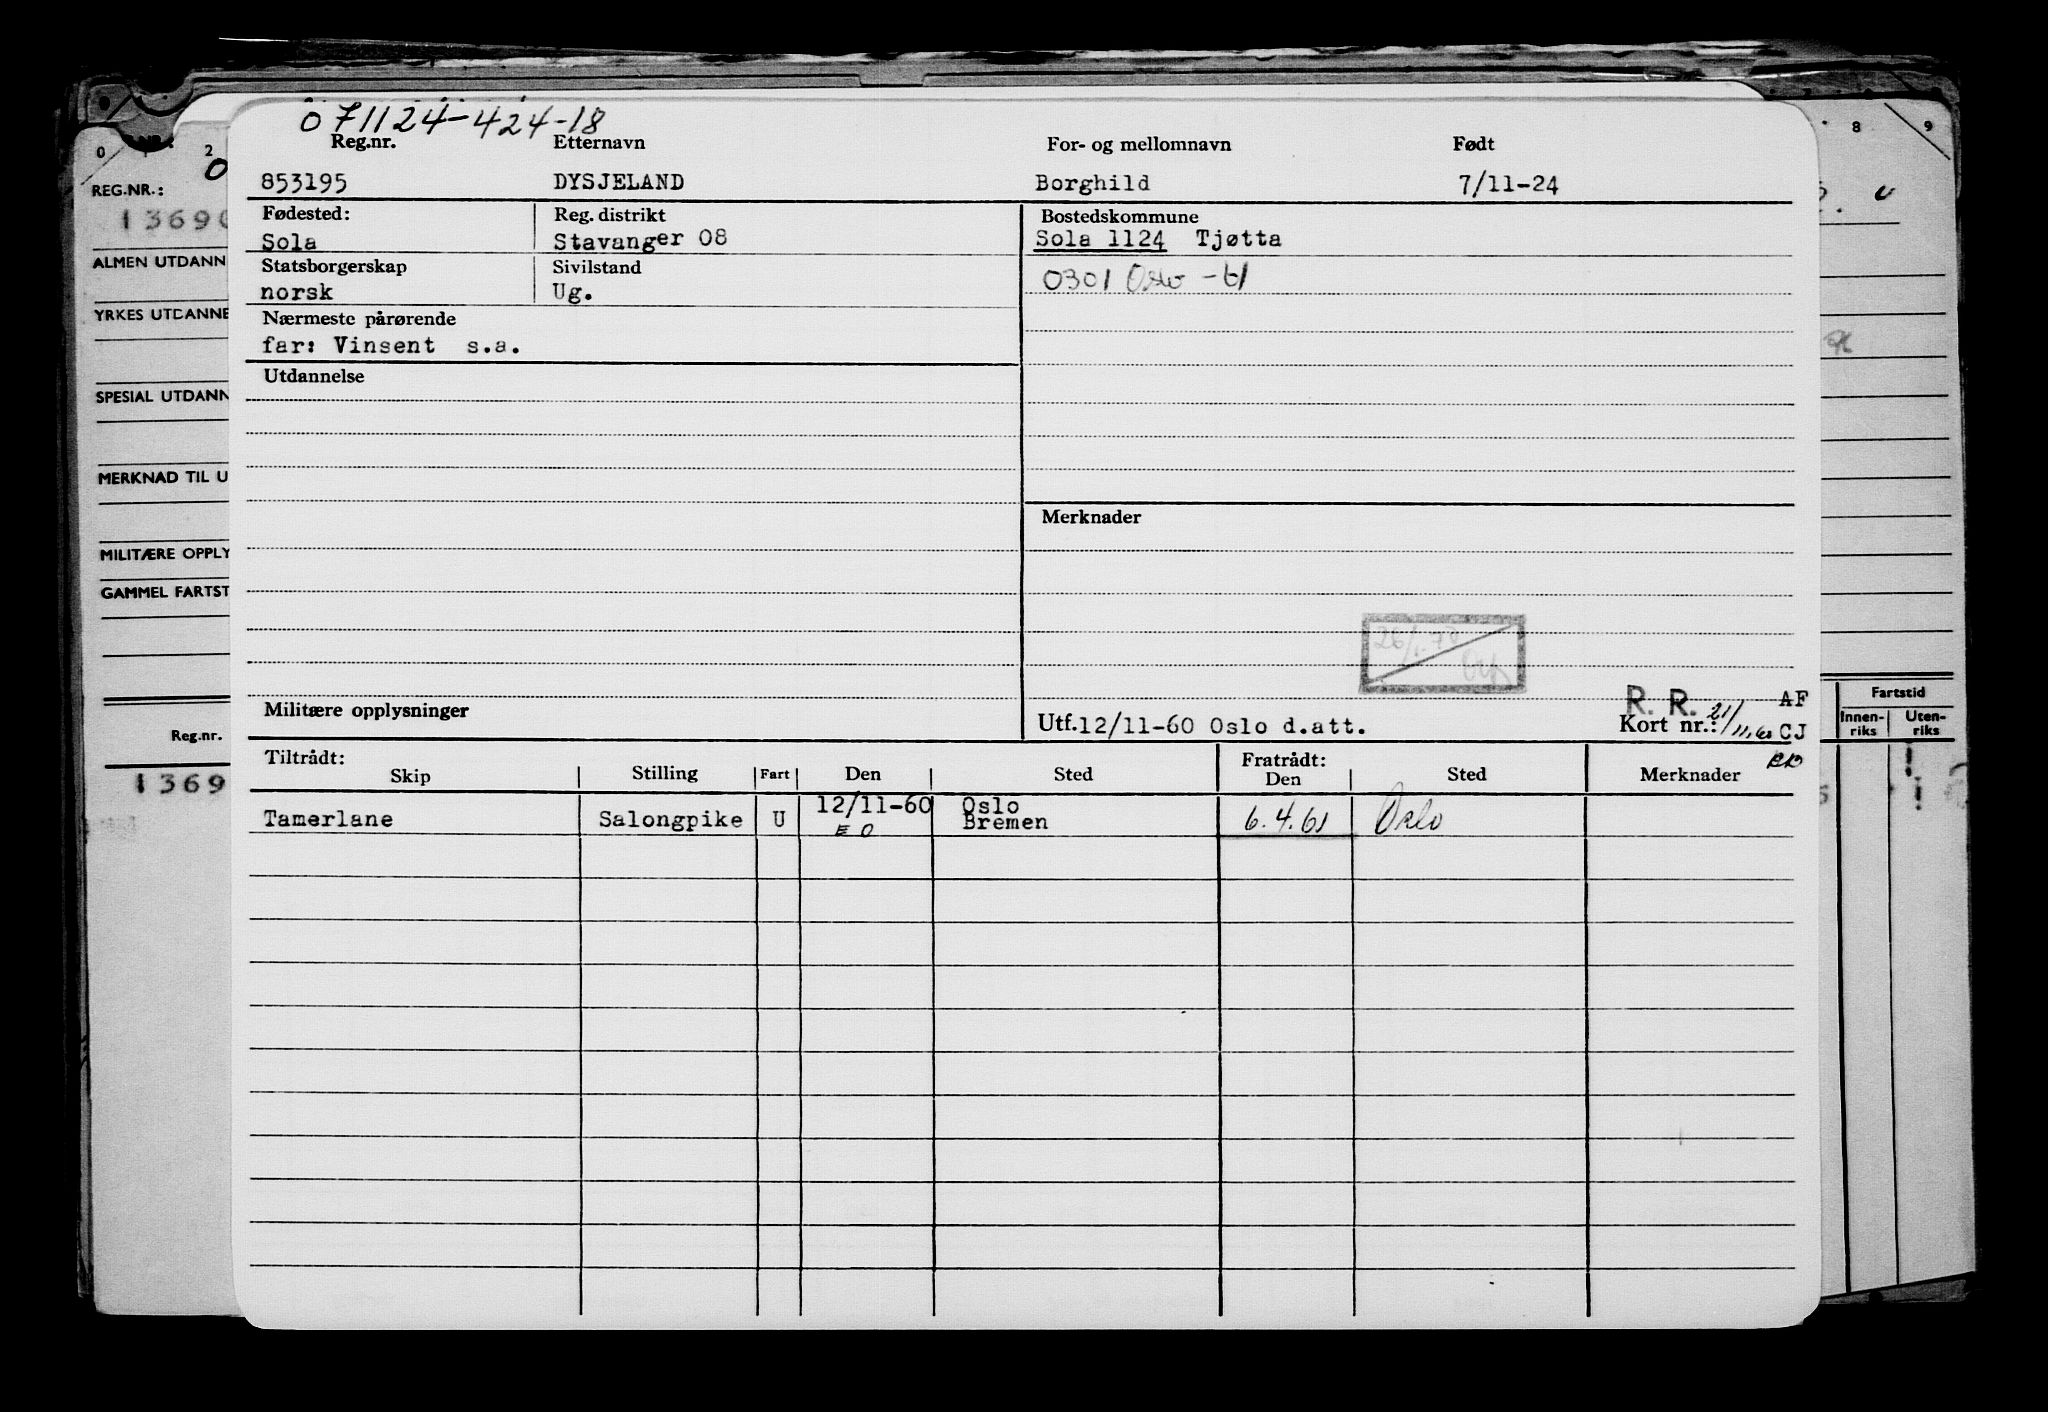 071124-424-18
Reg.nr. Etternavn For- og mellomnavn Født
853195 DYSJELAND Borghild 7/11-24
Fødested: Reg. distrikt Bostedskommune
Sola Stavanger 08 Sola 1124 Tjøtta
Statsborgerskap Sivilstand 0301 Oslo - 61
norsk Ug.
Nærmeste pårørende
far: Vinsent s.a.
Utdannelse
Merknader
26/1.78
R. R. AF
Militære opplysninger Utf.12/11-60 Oslo d.att. Kort nr.: 21/11.60 CJ
Tiltrådt: Fratrådt:
Skip Stilling Fart Den Sted Den Sted Merknader
Tamerlane Salongpike U 12/11-60 Oslo 6.4.61 Oslo
E O Bremen
0 2
REG.NR.:
1369
ALMEN UTDANN
YRKES UTDANNE
SPESIAL UTDANN
MERKNAD TIL U
MILITÆRE OPPLY
GAMMEL FARTST
Reg.nr.
1369
8 9
Fartstid
Innen-riks Uten-riks